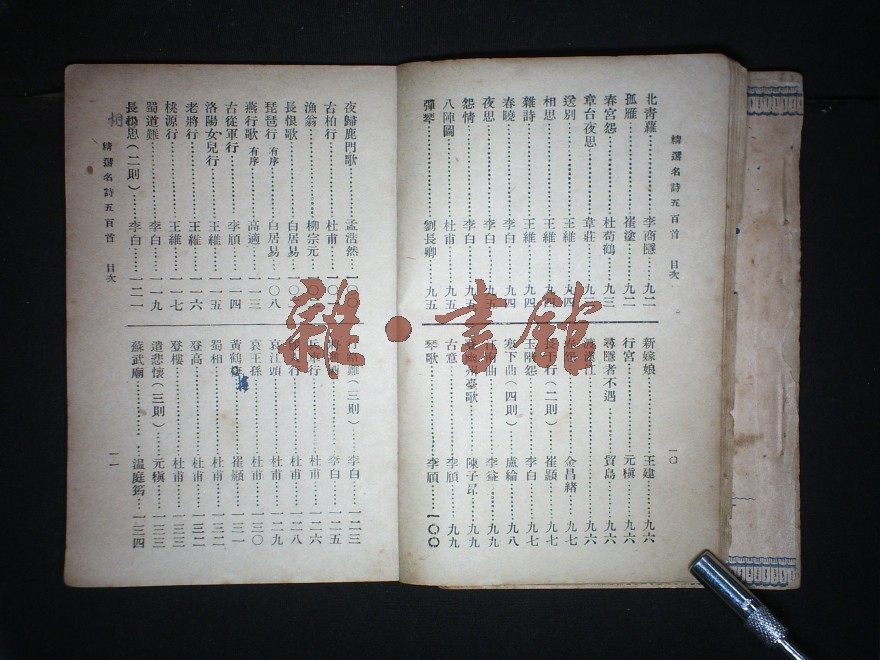 精選名詩五百首 目次
一〇
北青蘿……李商隱……九二
孤雁……崔塗……九二
春宮怨……杜荀鶴……九三
章台夜思……韋莊……九三
送別……王維……九四
相思……王維……九四
雜詩……王維……九四
春曉……李白……九四
夜思……李白……九五
怨情……李白……九五
八陣圖……杜甫……九五
彈琴……劉長卿……九五
新嫁娘……王建……九六
行宮……元稹……九六
尋隱者不遇……賈島……九六
漢江……九六
春怨……金昌緒……九七
長干行（二則）……崔顥……九七
玉階怨……李白……九七
塞下曲（四則）……盧綸……九八
曲……李益……九九
幽州臺歌……陳子昂……九九
古意……李頎……九九
琴歌……李頎……一〇〇
夜歸鹿門歌……孟浩然……一〇〇
古柏行……杜甫……一〇一
漁翁……柳宗元……一〇
長恨歌……白居易……一〇
琵琶行 有序……白居易……一〇八
燕行歌 有序……高適……一一三
古從軍行……李頎……一一四
洛陽女兒行……王維……一一五
老將行……王維……一一六
桃源行……王維……一一七
蜀道難……李白……一一九
長相思（二則）……李白……一二一
相
行路難（三則）……李白……一二三
將進酒……李白……一二五
兵車行……杜甫……一二六
人行……杜甫……一二八
哀江頭……杜甫……一二九
哀王孫……杜甫……一三〇
黃鶴樓……崔顥……一三一
樓
蜀相……杜甫……一三二
登高……杜甫……一三二
登樓……杜甫……一三三
遣悲懷（三則）……元稹……一三三
蘇武廟……溫庭筠……一三四
精選名詩五百首 目次
一一
雜·書館